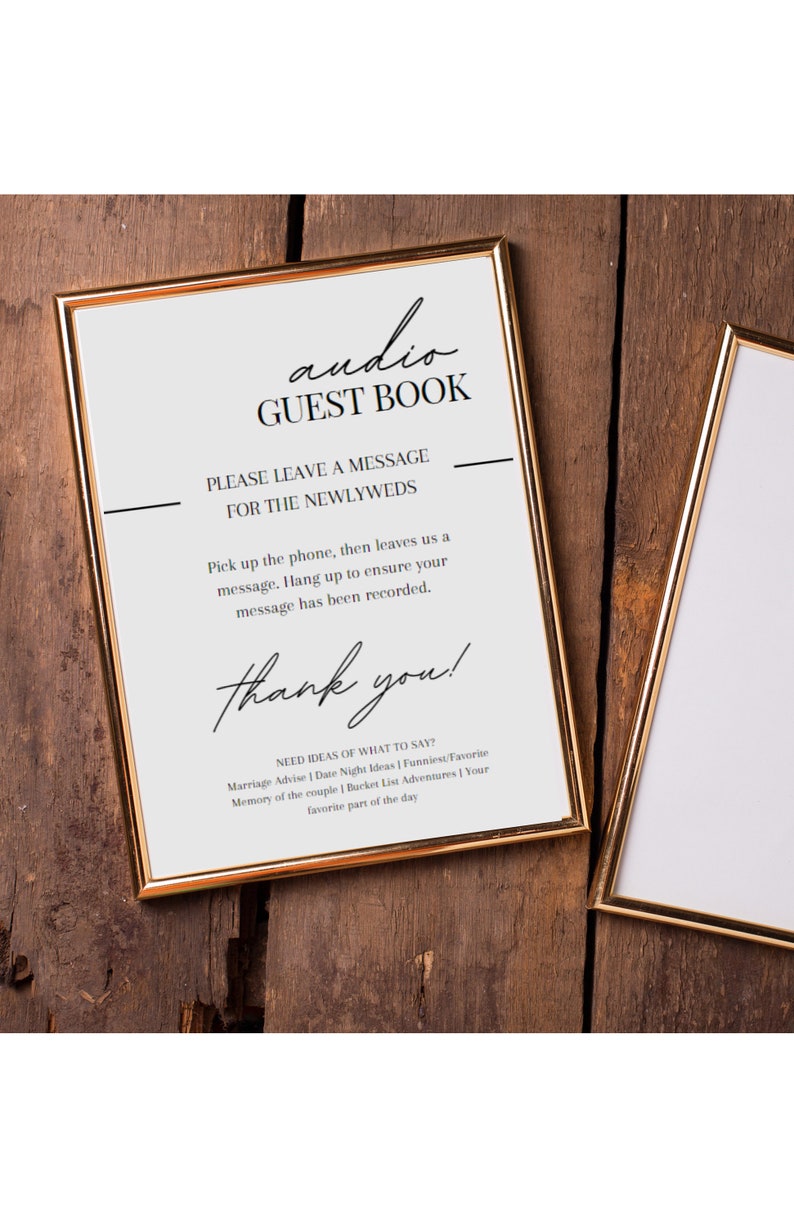 audio
GUEST BOOK
PLEASE LEAVE A MESSAGE
FOR THE NEWLYWEDS
Pick up the phone, then leaves us a
message. Hang up to ensure your
message has been recorded.
thank you!
NEED IDEAS OF WHAT TO SAY?
Marriage Advise | Date Night Ideas | Funniest/Favorite
Memory of the couple | Bucket List Adventures | Your
favorite part of the day